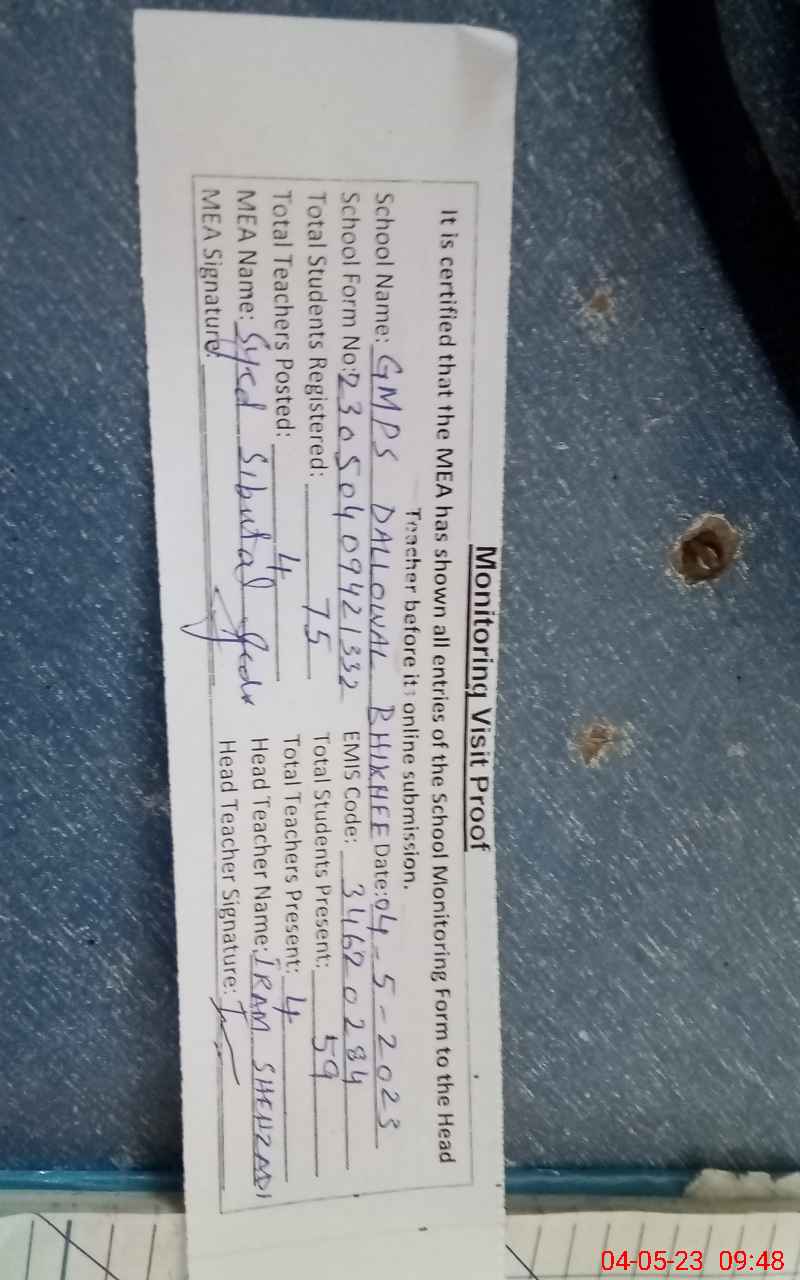 Monitoring Visit Proof
It is certified that the MEA has shown all entries of the School Monitoring Form to the Head
Teacher before its online submission.
School Name: GMPS DALLOWAL BHIKHEE Date: 04-5-2023
School Form No: 23050409421332 EMIS Code: 34620284
Total Students Registered: 75 Total Students Present: 59
Total Teachers Posted: 4 Total Teachers Present: 4
MEA Name: Syed Head Teacher Name: IRAM SHEHZADI
MEA Signature: Head Teacher Signature:
04-05-23 09:48